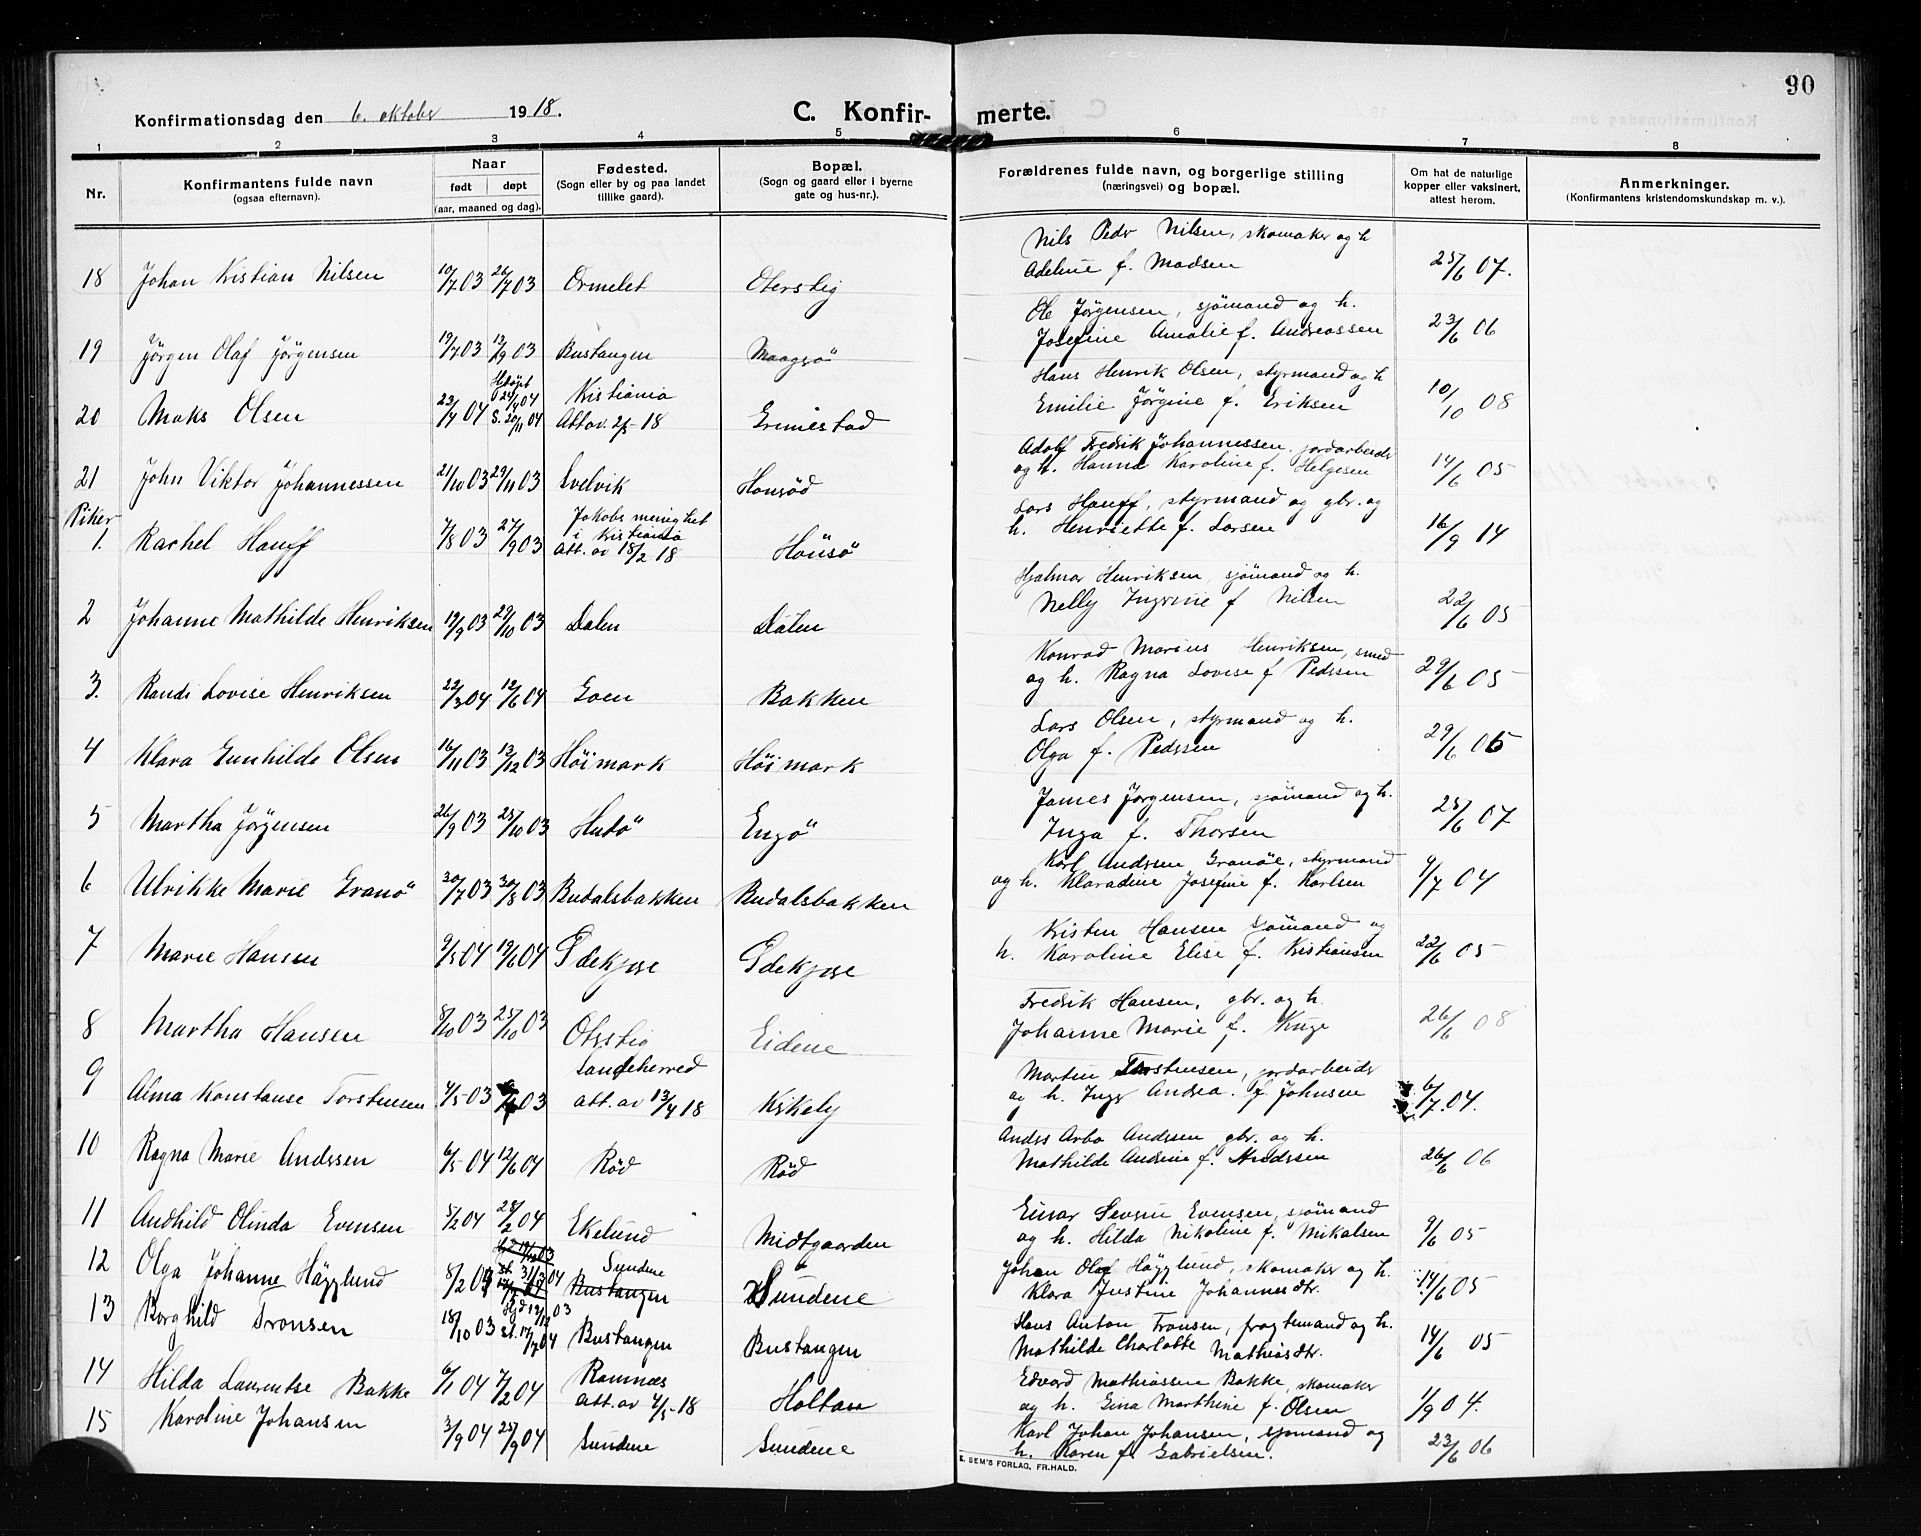 90
Konfirmationsdag den 6. oktober 1918.
C. Konfirmerte.
1 2 3 4 5 6 7 8
Nr.
Konfirmantens fulde navn
(ogsaa efternavn).
Naar
født døpt
(aar, maaned og dag).
Fødested.
(Sogn eller by og paa landet
tillike gaard).
Bopæl.
(Sogn og gaard eller i byerne
gate og hus-nr.).
Forældrenes fulde navn, og borgerlige stilling
(næringsvei) og bopæl.
Om hat de naturlige
kopper eller vaksinert,
attest herom.
Anmerkninger.
(Konfirmantens kristendomskundskap m. v.).
18 Johan Kristian Nilsen 10/7 03 26/7 03 Ormelet Oterstig
Nils Peder Nilsen, skomaker og h
Adeline f. Madsen 25/6 07.
19 Jörgen Olaf Jörgensen 19/7 03 13/9 03 Bustangen Maagsö
Ole Jörgensen, sjömand og h.
Josefine Amalie f. Andreassen 23/6 06
20 Maks Olsen 23/4 04 Hjdöpt 24/4 04 S. 20/11 04 Kristiania
Att av 2/5-18 Grimestad
Hans Henrik Olsen, styrmand og h
Emilie Jörgine f. Eriksen 10/10 08
21 John Viktor Johannessen 21/10 03 29/11 03 Svelvik Honsöd
Adolf Fredrik Johannessen, jordarbeider
og h. Hanna Karoline f. Helgesen 14/6 05
Piker
1. Rachel Hauff 7/8 03 27/9 03 Jakobs menighet
i Kristiania
att. av 18/2 18 Hönsö
Lars Hauff, styrmand og gbr. og
h. Henriette f. Larsen 16/9 14
2 Johanne Mathilde Henriksen 19/9 03 29/10 03 Dalen Dalen
Hjalmar Henriksen, sjömand og h.
Nelly Ingrine f Nilsen 22/6 05
3. Randi Lovise Henriksen 22/3 04 12/6 04 Goen Bakken
Konrad Marius Henriksen, smed
og h. Ragna Lovise f Pedersen 29/6 05
4 Klara Gunhilde Olsen 16/11 03 13/12 03 Höimark Höimark
Lars Olsen, styrmand og h.
Olga f. Pedersen 29/6 05
5 Martha Jörgensen 26/9 03 25/10 03 Hudö Engö
James Jörgensen, sjömand og h.
Inga f. Thorsen 25/6 07
6 Ulrikke Marie Granö 30/7 03 30/8 03 Budalsbakken Budalsbakken
Karl Andersen Granöe, styrmand
og h. Klaradine Josefine f. Karlsen 9/7 04
7 Marie Hansen 9/5 04 19/6 04 Gdekjær Gdekjær
Kristen Hansen sjömand og
h. Karoline Elise f. Kristiansen 22/6 05
8 Martha Hansen 8/10 03 25/10 03 Oterstig Eidene
Fredrik Hansen, gbr. og h.
Johanne Marie f. Kuge 26/6 08
9 Alma Konstanse Torstensen 4/5 03 03 Sandeherred
att. av 13/4 18 Kirkely
Martin Torstensen, jordarbeider
og h. Inger Andrea f Johnsen 6/7 04.
10 Ragna Marie Andersen 6/5 04 12/6 04 Röd Röd
Anders Arbo Andersen gbr. og h.
Mathilde Andrine f. Andersen 26/6 06
11 Andhild Olinda Evensen 5/2 04 28/2 04 Ekelund Midtgaarden
Einar Severin Evensen, sjömand
og h. Hilda Nikoline f. Mikalsen 9/6 05
12 Olga Johanne Hägglund 8/2 04 st. 31/3 04 Sundene
Bustangen Sundene
Johan Olaf Hägglund, skomaker og h.
Klara Justine Johannesdtr. 14/6 05
13 Borghild Tronsen 18/10 03 Hjd 13/12 03 st. 17/7 04 Bustangen Bustangen
Hans Anton Tronsen, fragtemand og h.
Mathilde Charlotte Mathiasdtr. 14/6 05
14 Hilda Laurentse Bakke 6/1 04 7/2 04 Ramnæs
att. av 4/5-18 Holtan
Edvard Mathiassen Bakke, skomaker
og h. Gina Marthine f. Olsen 1/9 04.
15 Karoline Johansen 3/9 04 25/9 04 Sundene Sundene
Karl Johan Johansen, sjömand og
h. Karen f Gabrielsen. 23/6 06
E. SEM'S FORLAG, FR.HALD.